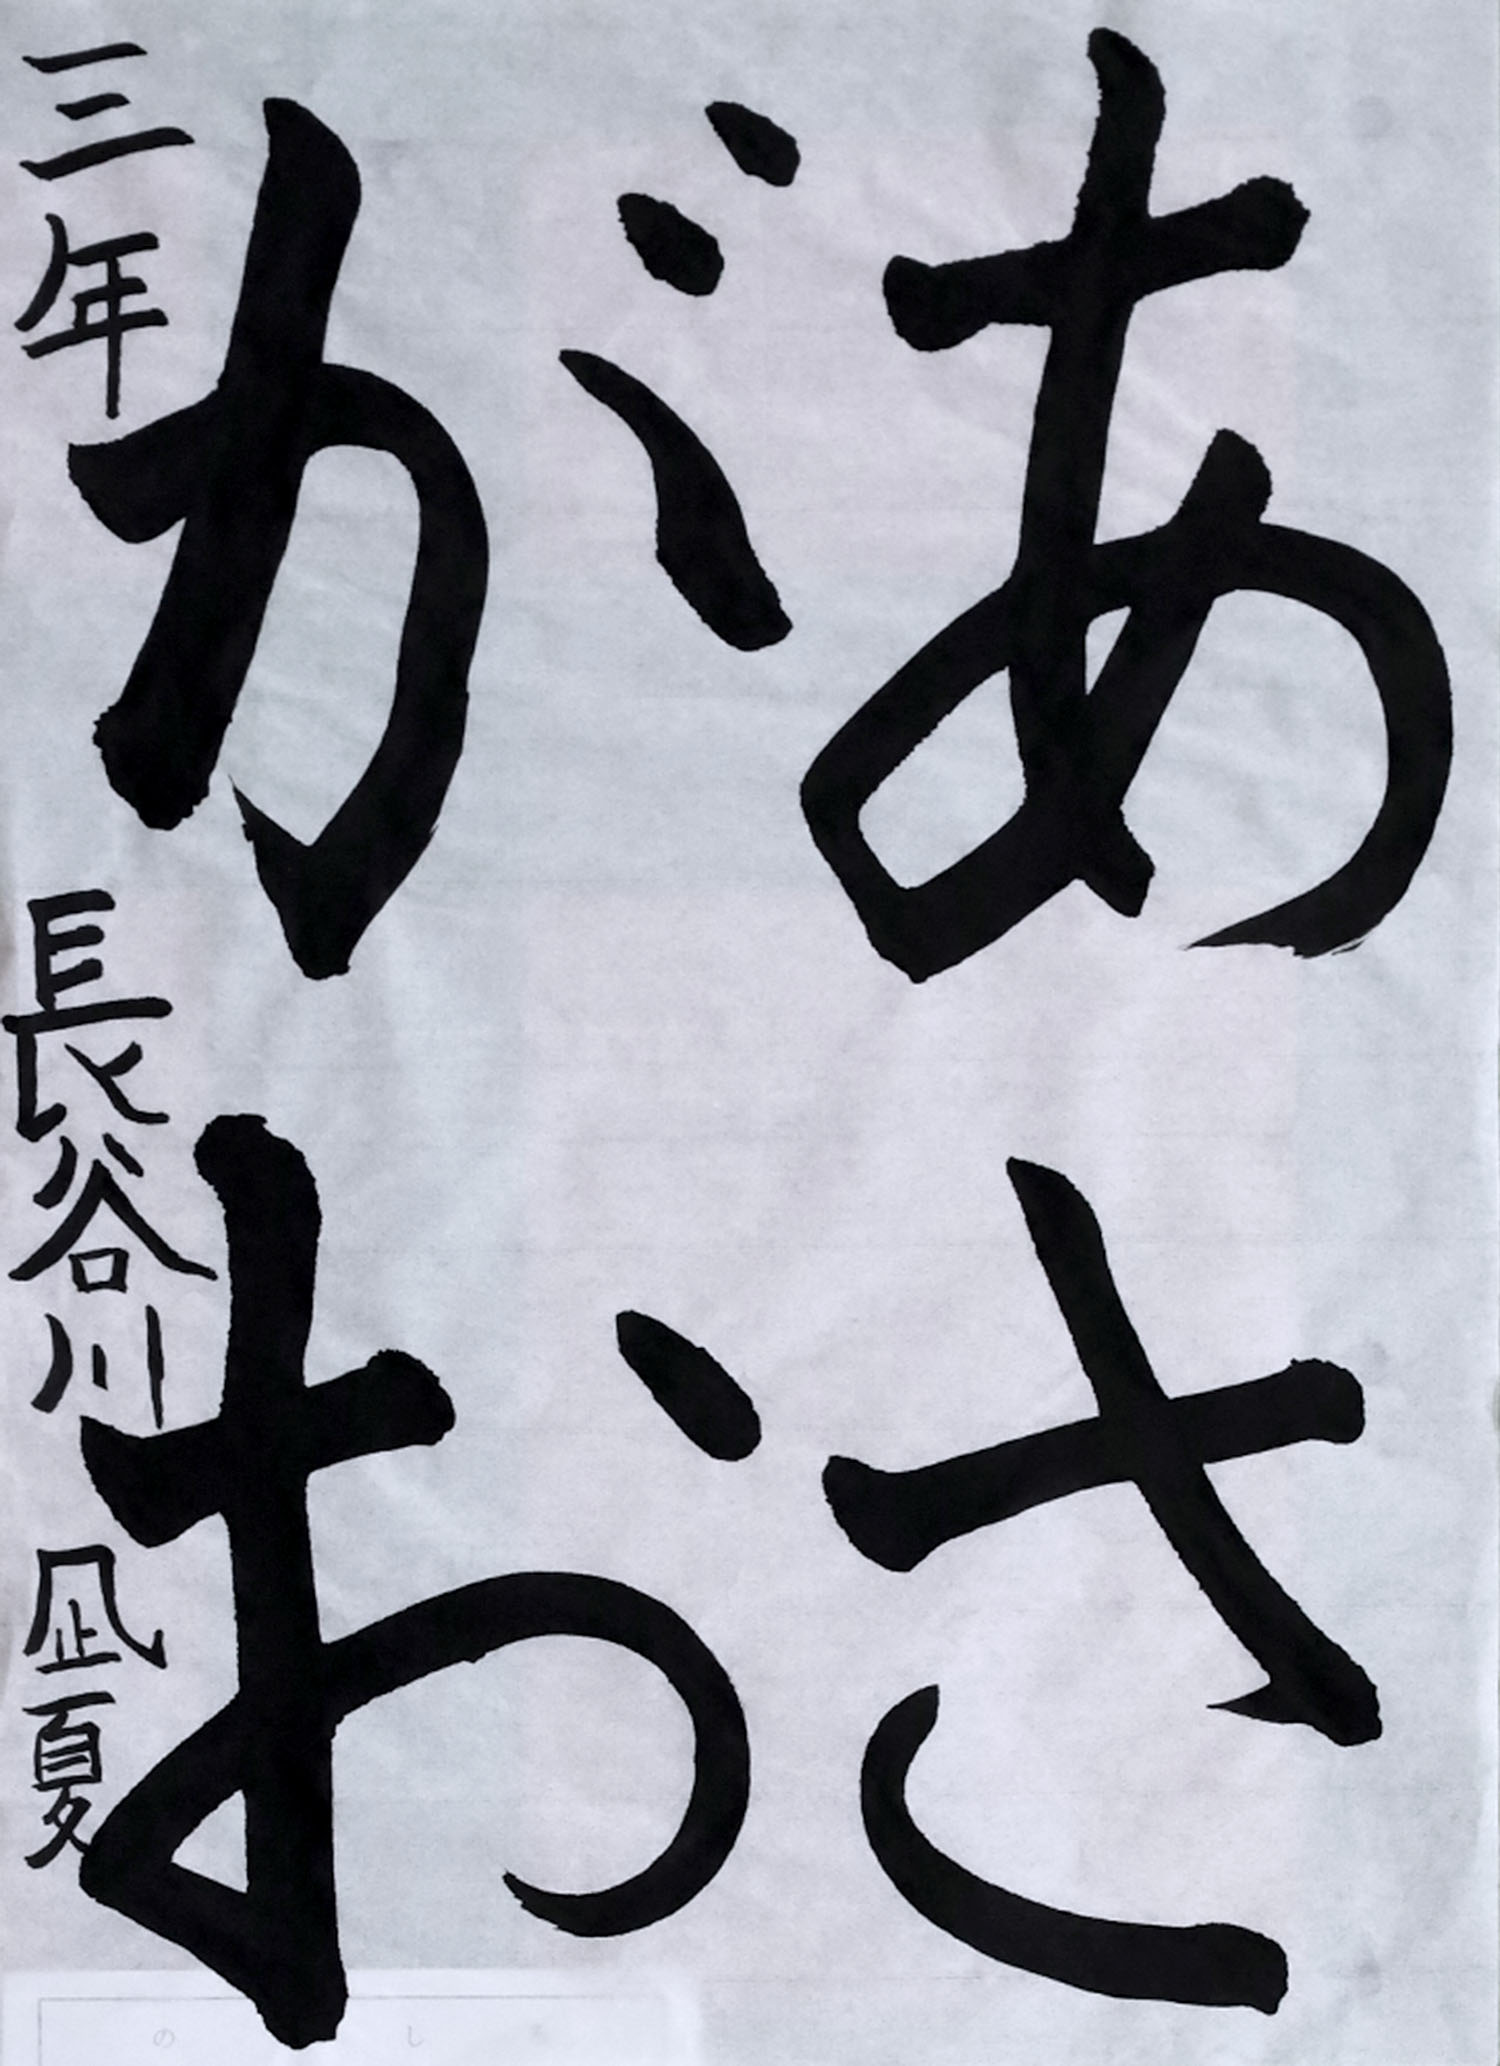 あさ
がお
三年 長谷川 凪夏